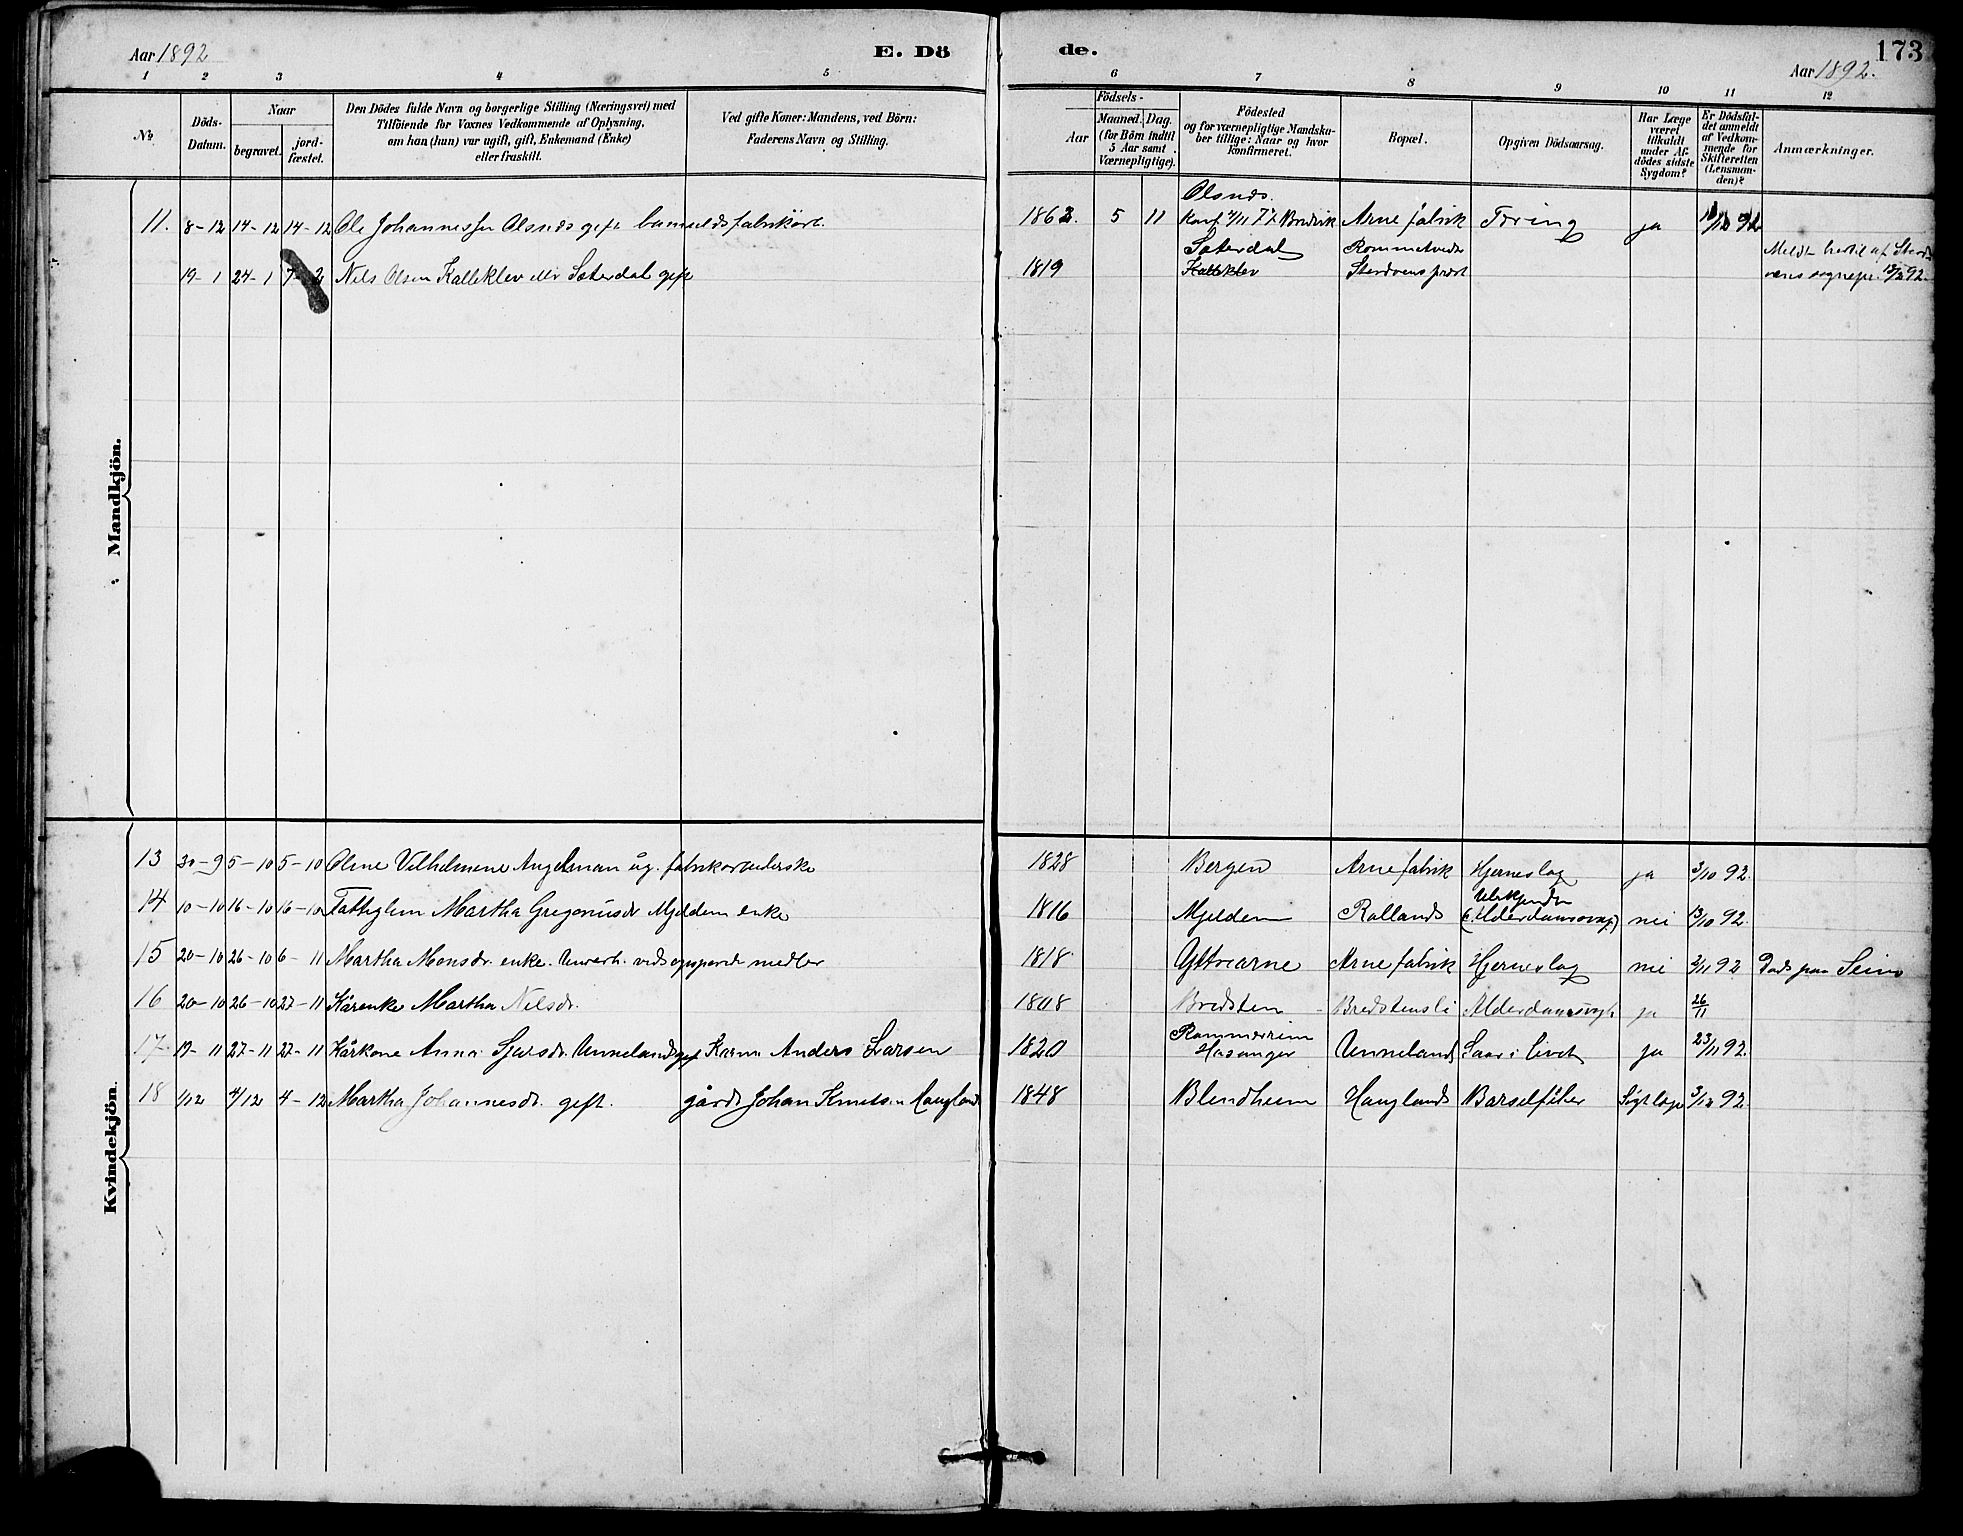 Aar 1892
E. Dö
de.
173
Aar 1892.
1 2 3 4 5 6 7 8 9 10 11 12
No
Döds-
Datum.
Naar
begravet.
jord-
fæstet.
Den Dödes fulde Navn og borgerlige Stilling (Næringsvei) med
Tilföiende for Voxnes Vedkommende af Oplysning,
om han (hun) var ugift, gift, Enkemand (Enke)
eller fraskilt.
Ved gifte Koner: Mandens, ved Börn:
Faderens Navn og Stilling.
Födsels-
Aar
Maaned.
Dag.
(for Börn indtil
5 Aar samt
Værnepligtige).
Födested
og for værnepligtige Mandska-
ber tillige: Naar og hvor
konfirmeret.
Bopæl.
Opgiven Dödsaarsag.
Har Læge
været
tilkaldt
under Af-
dödes sidste
Sygdom?
Er Dödsfal-
det anmeldt
af Vedkom-
mende for
Skifteretten
(Lensman-
den)?
Anmærkninger.
Mandkjön.
Olsnds.
11. 8-12 14-12 14-12 Ole Johannessen Olsnds gift bomuldsfabrikarb. 1862. 5 11 Konf 7/11 77 Bredvik Arne fabrik Tæring ja 10/12 92
Sæterdal Rommetvedt Meldt hertil af Stord-
19-1 24-1 7-2 Nils Olsen Kalleklev eller Sæterdal gift 1819 Kalleklev Stordøens præst øens sognepr. 92.
Kvindekjön.
13 30-9 5-10 5-10 Oline Vilhelmine Angelman ug. fabrikarbeiderske 1828 Bergen Arne fabrik Hjerneslag ja 3/10 92.
Ubekjendt
14 10-10 16-10 16-10 Fattiglem Martha Gregoriusdr Mjeldem enke 1816 Mjeldem Rollands (Alderdomssvagh) nei 13/10 92.
15 20-10 26-10 6-11 Martha Monsdr. enke. 1818 Yttrearne Arne fabrik Hjerneslag nei 2/11 92 Døds paa Seim
16 20-10 26-10 27-11 Kårenke Martha Nilsdr. 1808 Bredsten Bredstensli Alderdomssvagh ja 26/11
Rommerheim
17 19-11 27-11 27-11 Kårkone Anna Sjursdr. Unneland gift Kårm. Anders Larsen 1820 Hosanger Unneland Saar i livet ja 23/11 92.
18 1/12 4/12 4-12 Martha Johannesdr. gift. gårdb Johan Knutsen Haugland 1848 Blindheim Haugland Barselfeber 3/12 92.